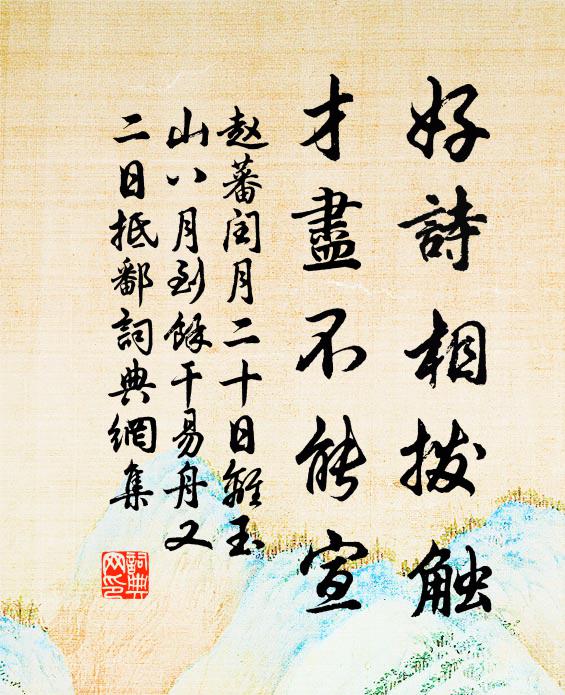 好詩相撥触
才盡不能宣
赵蕃闰月二十日離玉
山八月到餘干易舟又
二日抵鄱詞典網集
詞典
网印